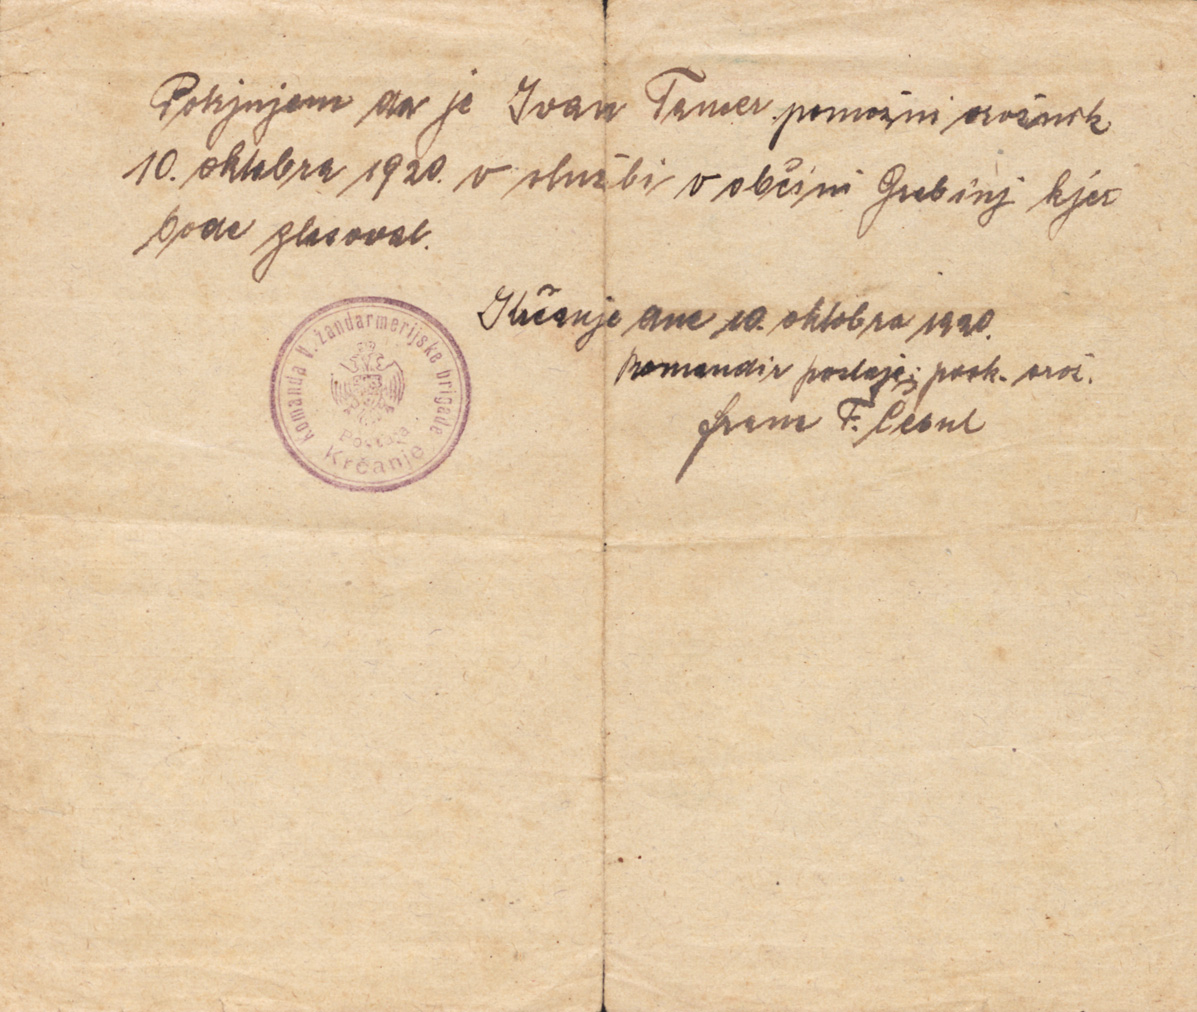 Potrjujem da je Ivan Tamer pomožni orožnik
10. oktobra 1920. v službi v občini Grebinj kjer
bode glasoval.
Krčanje dne 10. oktobra 1920.
Komandir postaje: pook. orož.
Franc F.
Komanda V. žandarmerijske brigade
Postaja
Krčanje